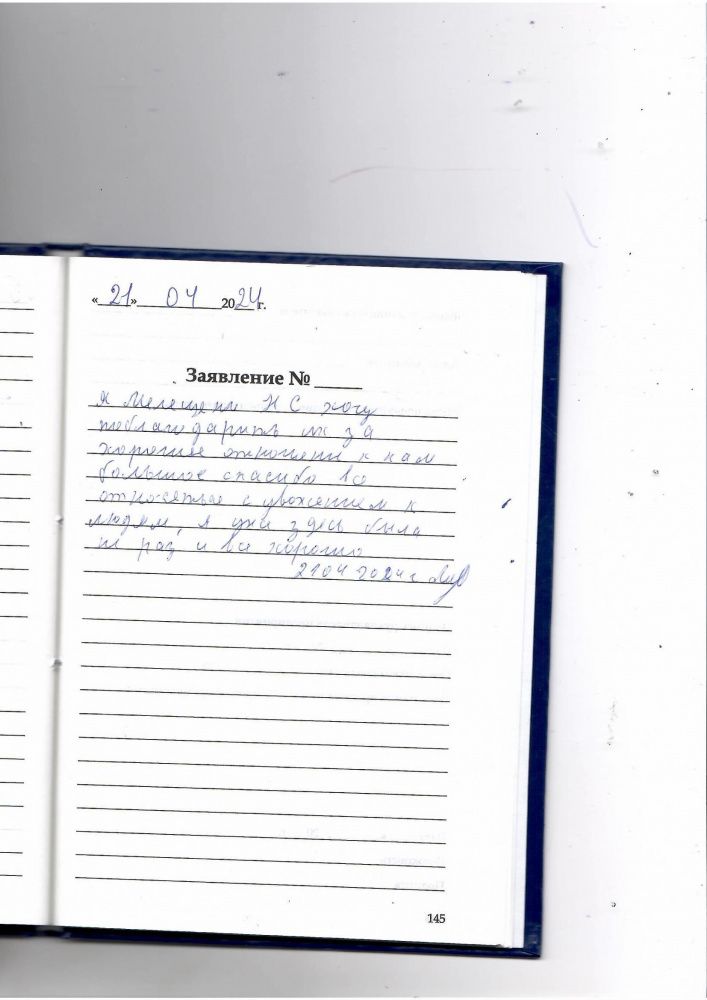 «21» 04 2024 г.
Заявление №
я Мелещени Н С хочу
поблагодарить их за
хорошее отношени к нам
большое спасибо все
относяться с уважением к
людям, я уже здесь была
не раз и все хорошо
21 04 2024 г
145